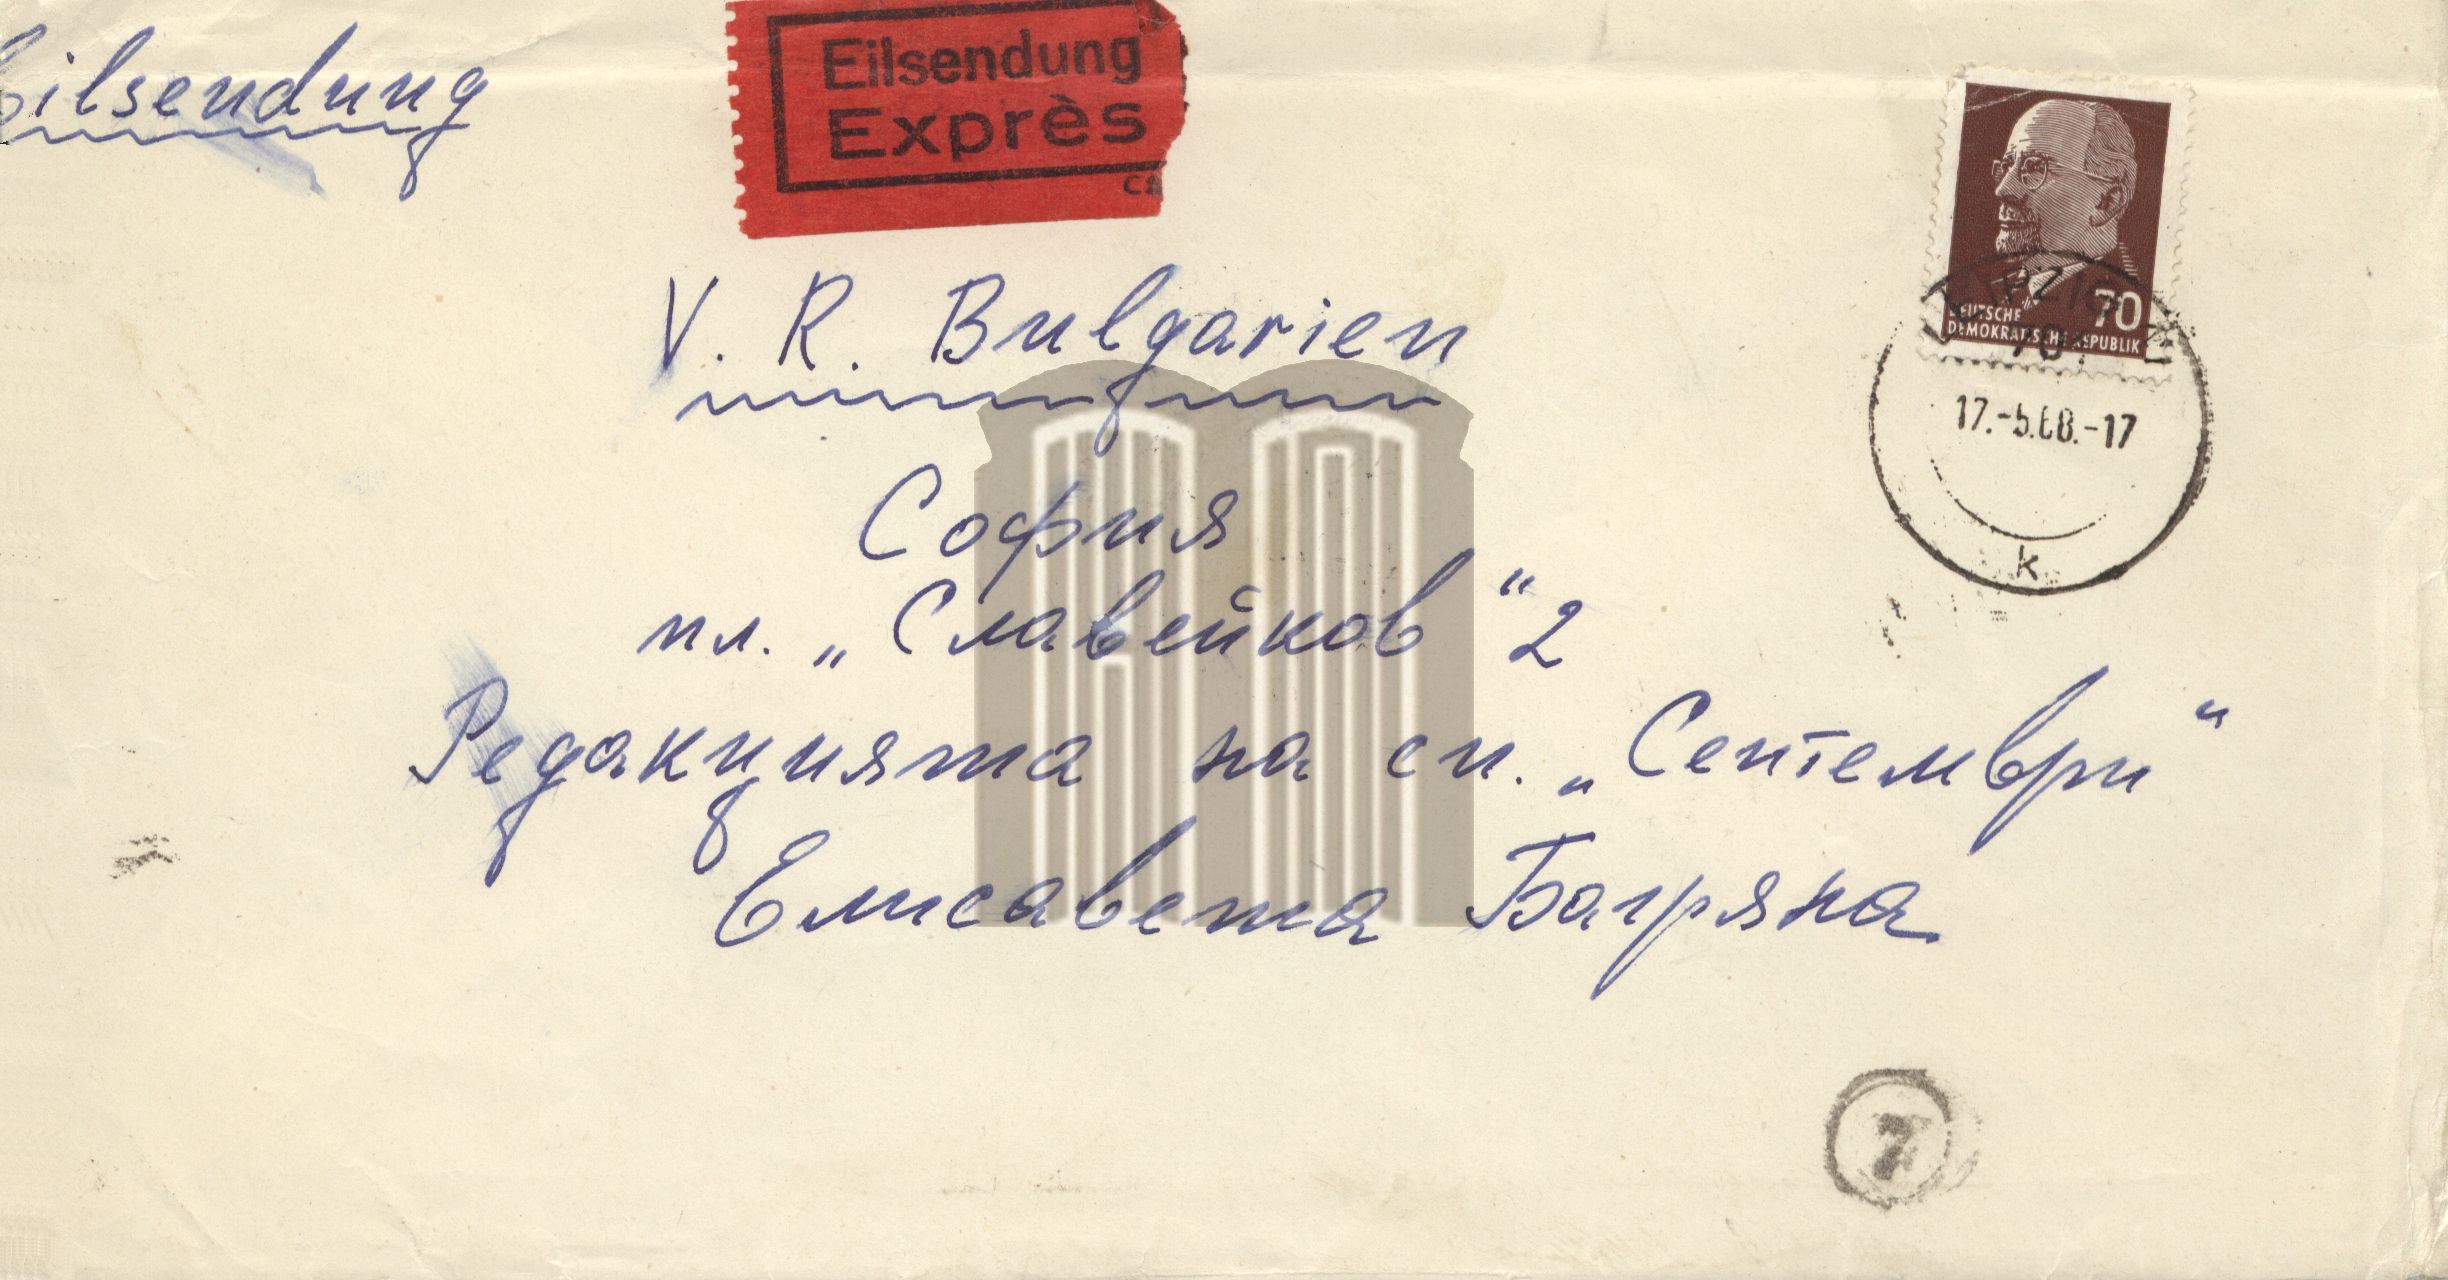 Eilsendung
Eilsendung
Exprès
V. R. Bulgarien
София
пл. „Славейков“ 2
Редакцията на сп. „Септември“
Елисавета Багряна
70
DEUTSCHE
DEMOKRATISCHE REPUBLIK
LEIPZIG
17.-5.68.-17
k
7